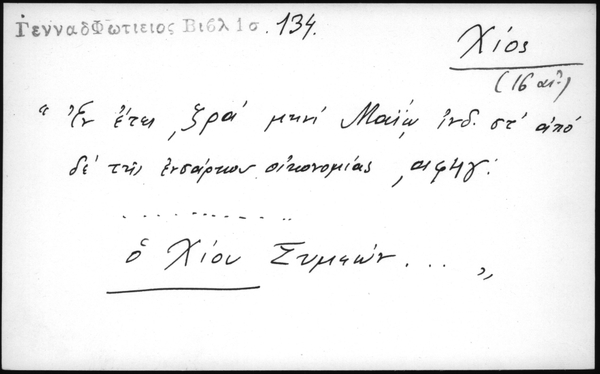 ΓενναδΦωτιειος Βιβλ 1σ. 134.
Χίος
(16 αἰ.)
“ Ἐν ἔτει ͵ζρα΄ μηνί Μαΐῳ ἰνδ. στ΄ ἀπό
δέ τῆς ἐνσάρκου οἰκονομίας ͵αφηγ΄.
..............
ὁ Χίου Συμεών... „